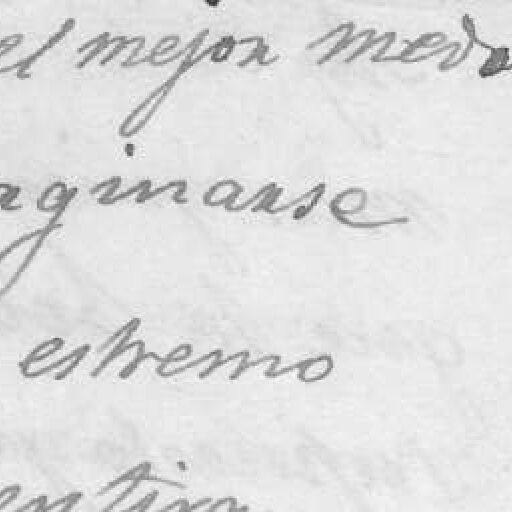 el mejor medo
aginarse
estremo
entira